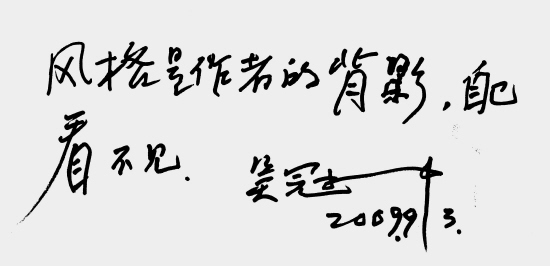 风格是作者的背影，自己
看不见．
吴冠中
2009.9.3.